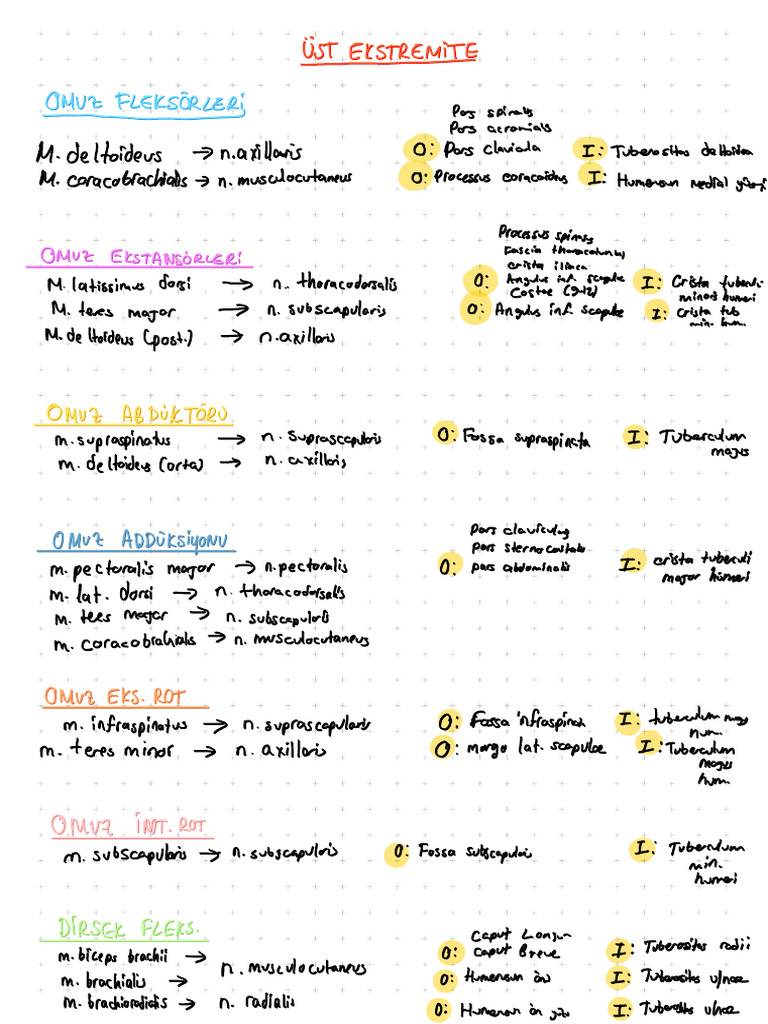 ÜST EKSTREMİTE
OMUZ FLEKSÖRLERİ
Pars spinalis
Pars acromialis
M. deltoideus → n.axillaris O: Pars clavicula I: Tuberositas deltoidea
M. coracobrachialis → n. musculocutaneus O: Processus coracoideus I: Humerusun medial yüzü
OMUZ EKSTANSÖRLERİ
Processus spinosus
Fascia thoracolumb
crista iliaca
M. latissimus dorsi → n. thoracodorsalis O: Angulus inf. scapulae I: Crista tuberculi
Costae (9-12) minoris humeri
M. teres major → n. subscapularis O: Angulus inf. scapulae I: crista tub
min. hum.
M. deltoideus (post.) → n.axillaris
OMUZ ABDÜKTÖRÜ
m. supraspinatus → n. suprascapularis O: Fossa supraspinata I: Tuberculum
majus
m. deltoideus (orta) → n. axillaris
OMUZ ADDÜKSİYONU
Pars clavicularis
Pars sternocostalis
m. pectoralis major → n. pectoralis O: pars abdominalis I: crista tuberculi
major humeri
m. lat. dorsi → n. thoracodorsalis
m. teres major → n. subscapularis
m. coracobrachialis → n. musculocutaneus
OMUZ EKS. ROT
m. infraspinatus → n. suprascapularis O: Fossa infraspinata I: tuberculum majus
hum.
m. teres minor → n. axillaris O: margo lat. scapulae I: Tuberculum
majus
hum.
OMUZ İNT. ROT
m. subscapularis → n. subscapularis O: Fossa subscapularis I: Tuberculum
min.
humeri
DİRSEK FLEKS.
Caput Longum
m. biceps brachii → n. musculocutaneus O: caput Breve I: Tuberositas radii
m. brachialis → O: Humerusun ön I: Tuberositas ulnae
m. brachioradialis → n. radialis O: Humerusun ön yüzü I: Tuberositas ulnae